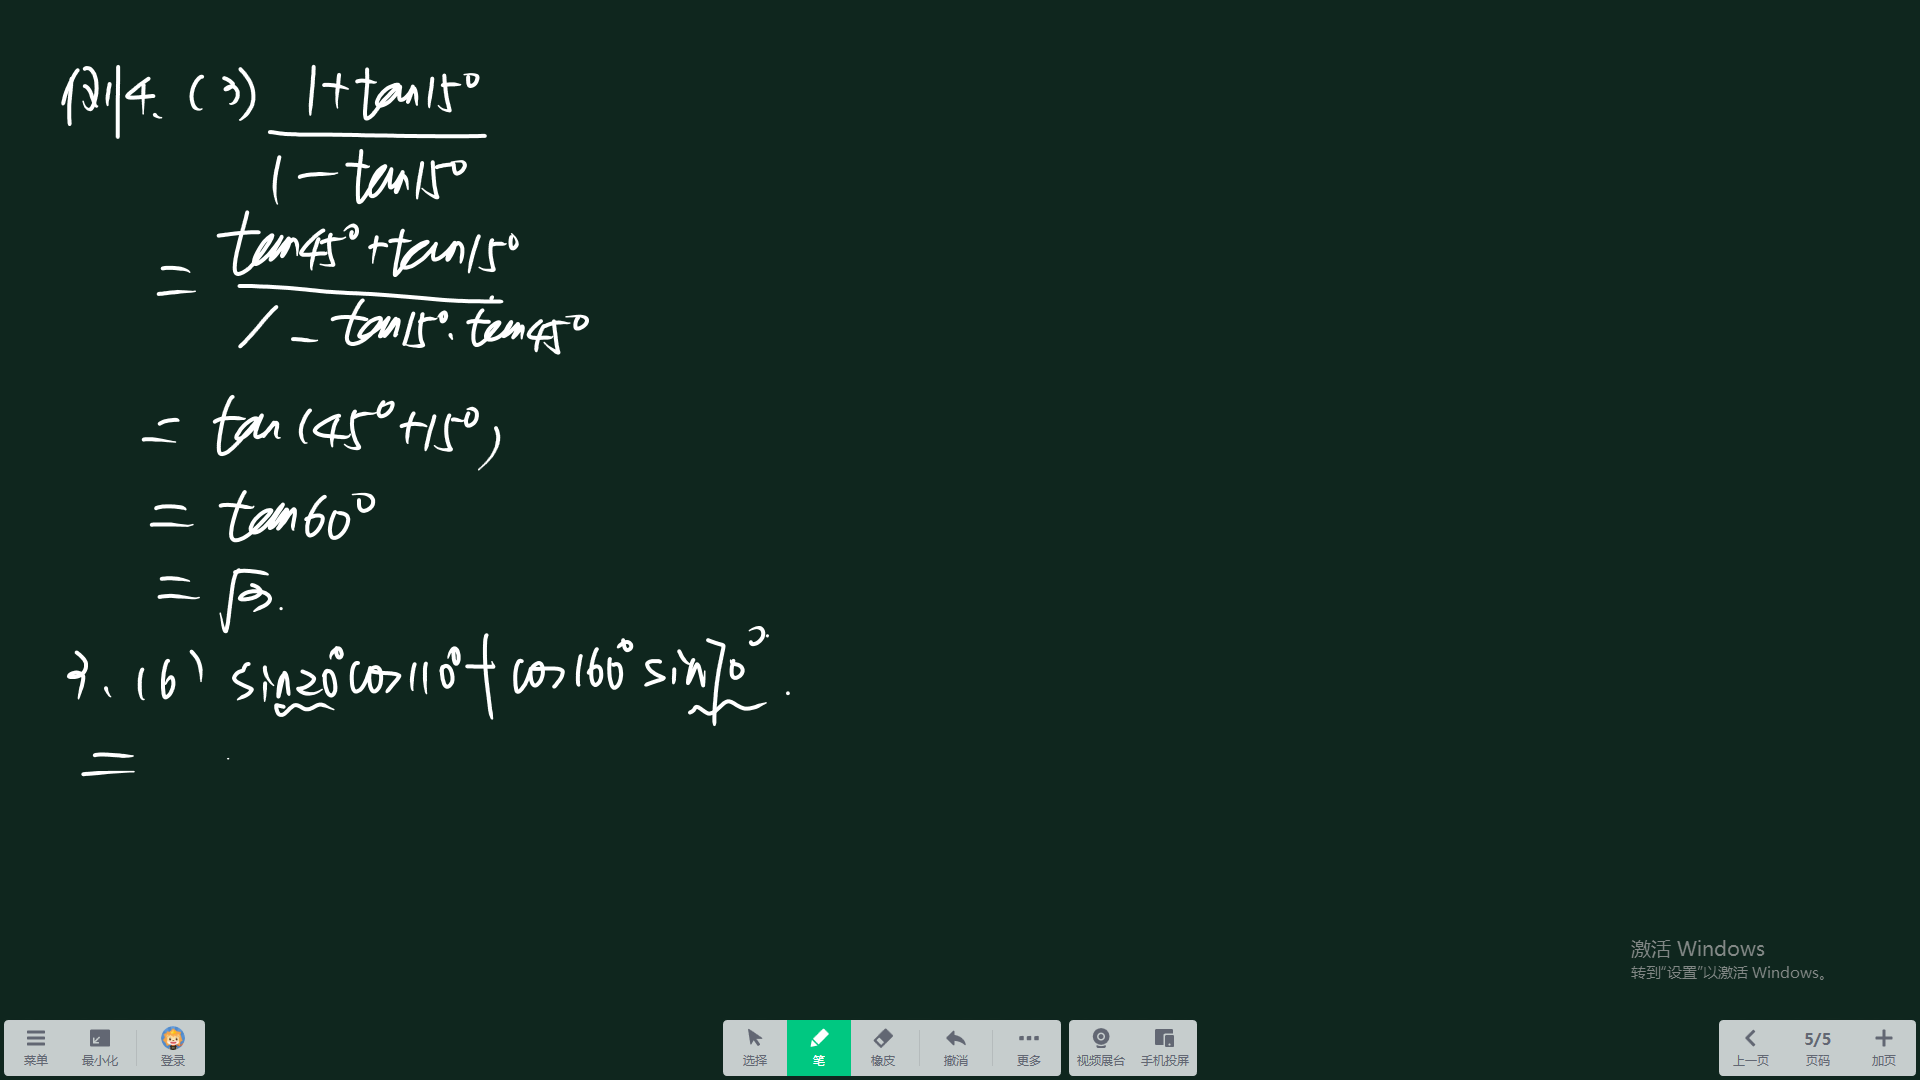 例4.（3） (1+tan15°)/(1-tan15°)
= (tan45°+tan15°)/(1-tan15°·tan45°)
= tan(45°+15°)
= tan60°
= √3.
3.（6） sin20°cos110°+cos160°sin70°.
=
激活 Windows
转到“设置”以激活 Windows。
菜单 最小化 登录 选择 笔 橡皮 撤消 更多 视频展台 手机投屏 上一页 5/5 页码 加页